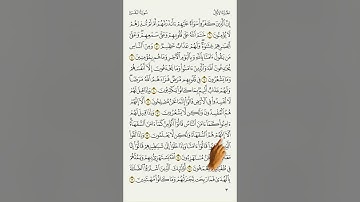 الجزء الأول سورة البقرة
إن الذين كفروا سواء عليهم ءأنذرتهم أم لم تنذرهم
لا يؤمنون ٦ ختم الله على قلوبهم وعلى سمعهم وعلى
أبصرهم غشوة ولهم عذاب عظيم ٧ ومن الناس
من يقول ءامنا بالله وباليوم الأخر وما هم بمؤمنين ٨
يخدعون الله والذين ءامنوا وما يخدعون إلا أنفسهم
وما يشعرون ٩ في قلوبهم مرض فزادهم الله مرضا
ولهم عذاب أليم بما كانوا يكذبون ١٠ وإذا قيل لهم
لا تفسدوا في الأرض قالوا إنما نحن مصلحون ١١
ألا إنهم هم المفسدون ولكن لا يشعرون ١٢ وإذا قيل لهم
ءامنوا كما ءامن الناس قالوا أنؤمن كما ءامن السفهاء
ألا إنهم هم السفهاء ولكن لا يعلمون ١٣ وإذا لقوا
الذين ءامنوا قالوا ءامنا وإذا خلوا إلى شيطينهم قالوا إنا
معكم إنما نحن مستهزءون ١٤ الله يستهزئ بهم ويمدهم
في طغينهم يعمهون ١٥ أولئك الذين اشتروا الضللة
بالهدى فما ربحت تجرتهم وما كانوا مهتدين ١٦
٣